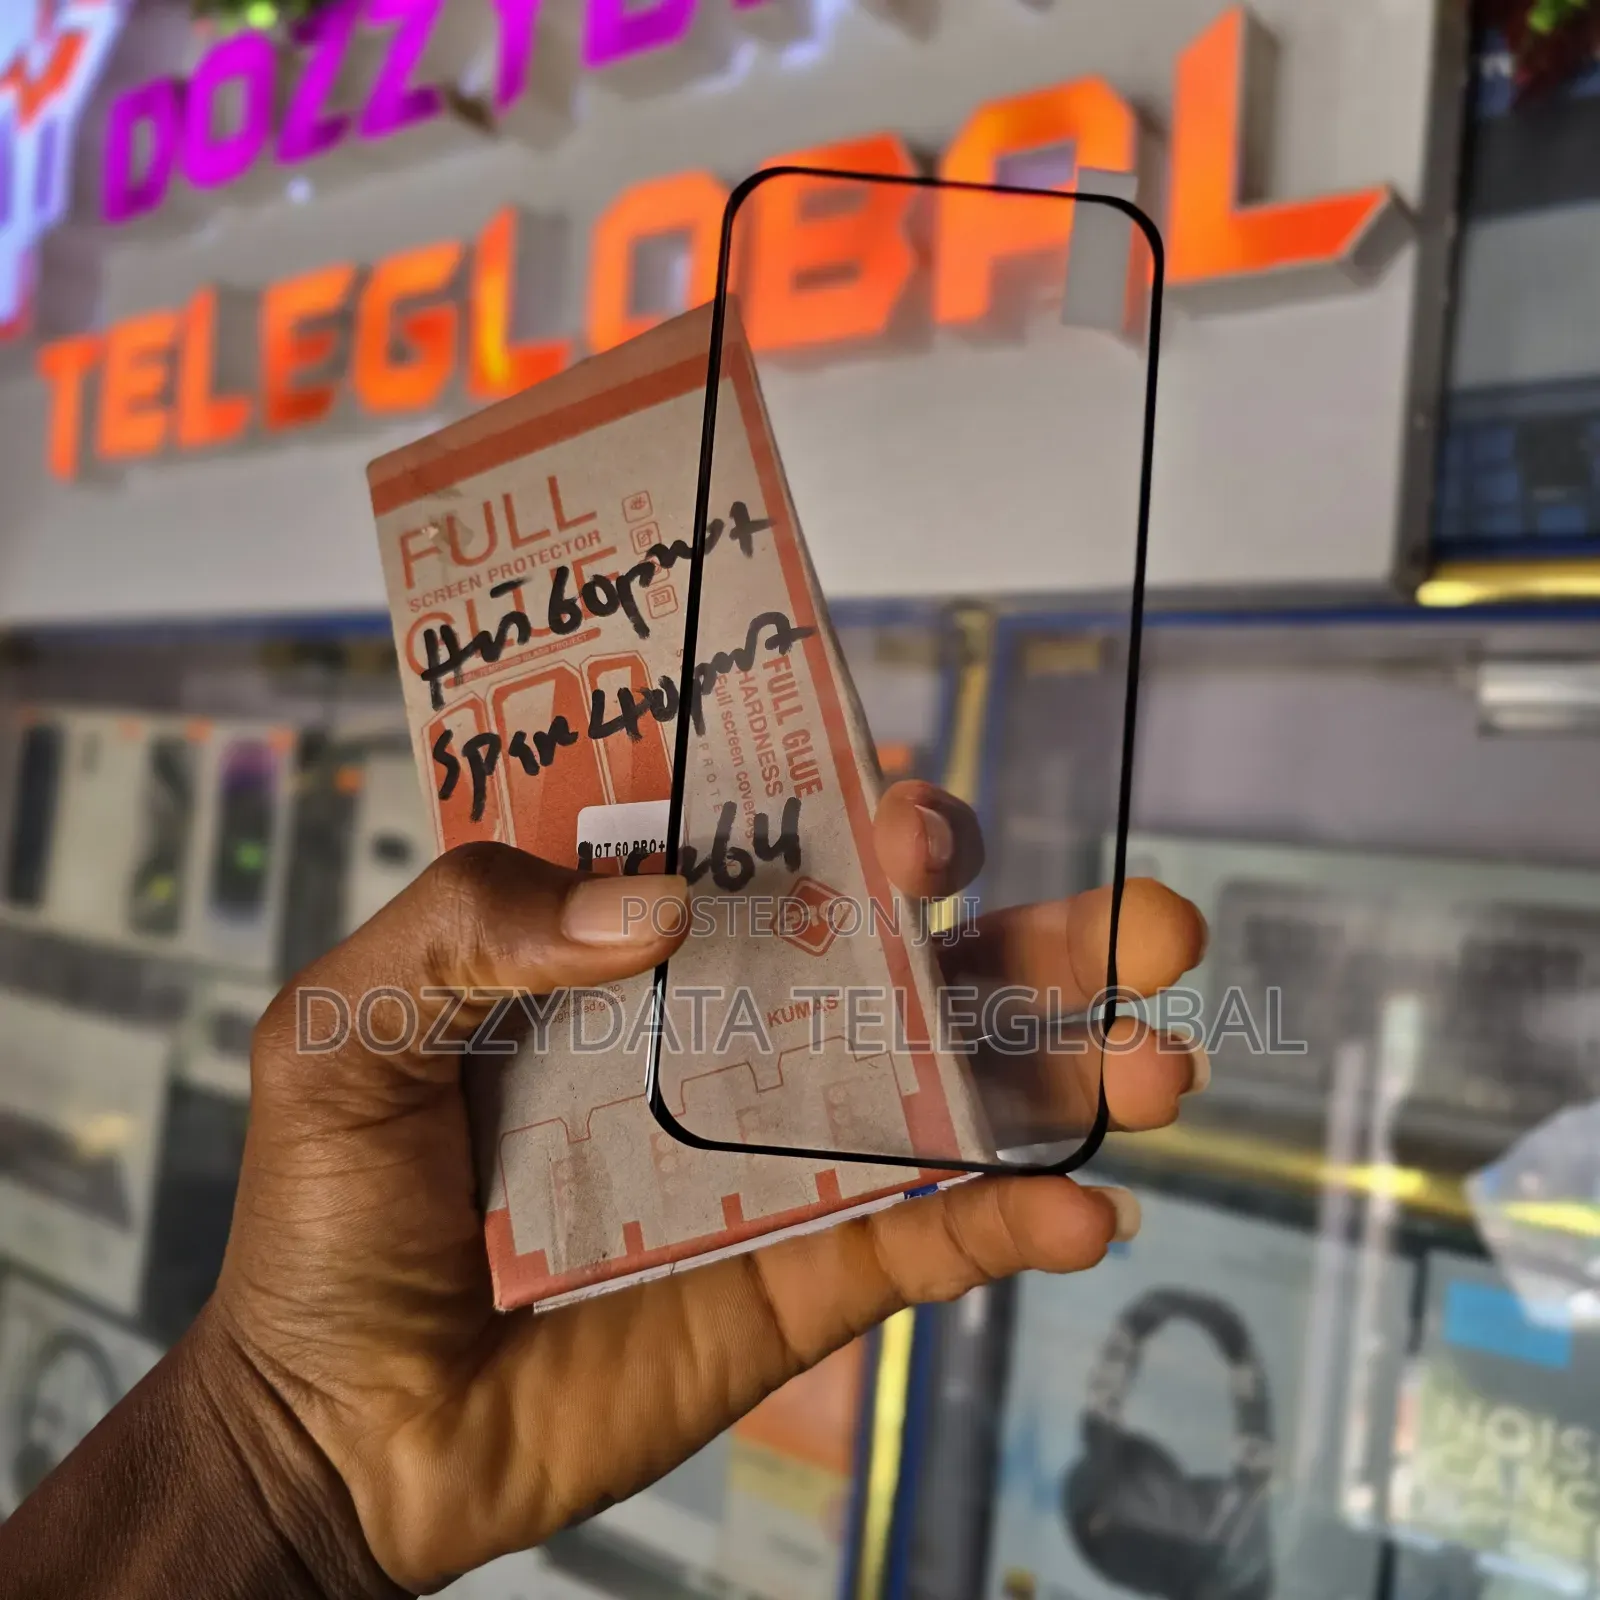 DOZZYD
TELEGLOBAL
FULL
SCREEN PROTECTOR
GLUE
Hot 60 pmot
Spar 40 pmot
FULL GLUE
HARDNESS
Full screen coverag
HOT 60 PRO+
64
POSTED ON JIJI
DOZZYDATA TELEGLOBAL
KUMAS
NOIS
CANC